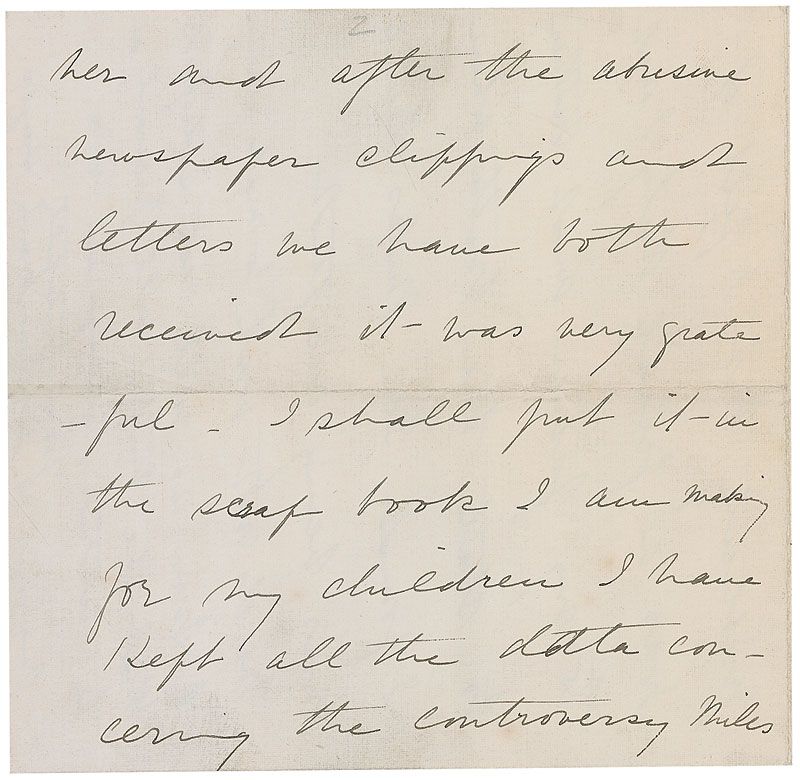 2
her and after the abusive
newspaper clippings and
letters we have both
received it was very grate
-ful - I shall put it in
the scrap book I am making
for my children I have
Kept all the data con-
cerning the controversy Miles